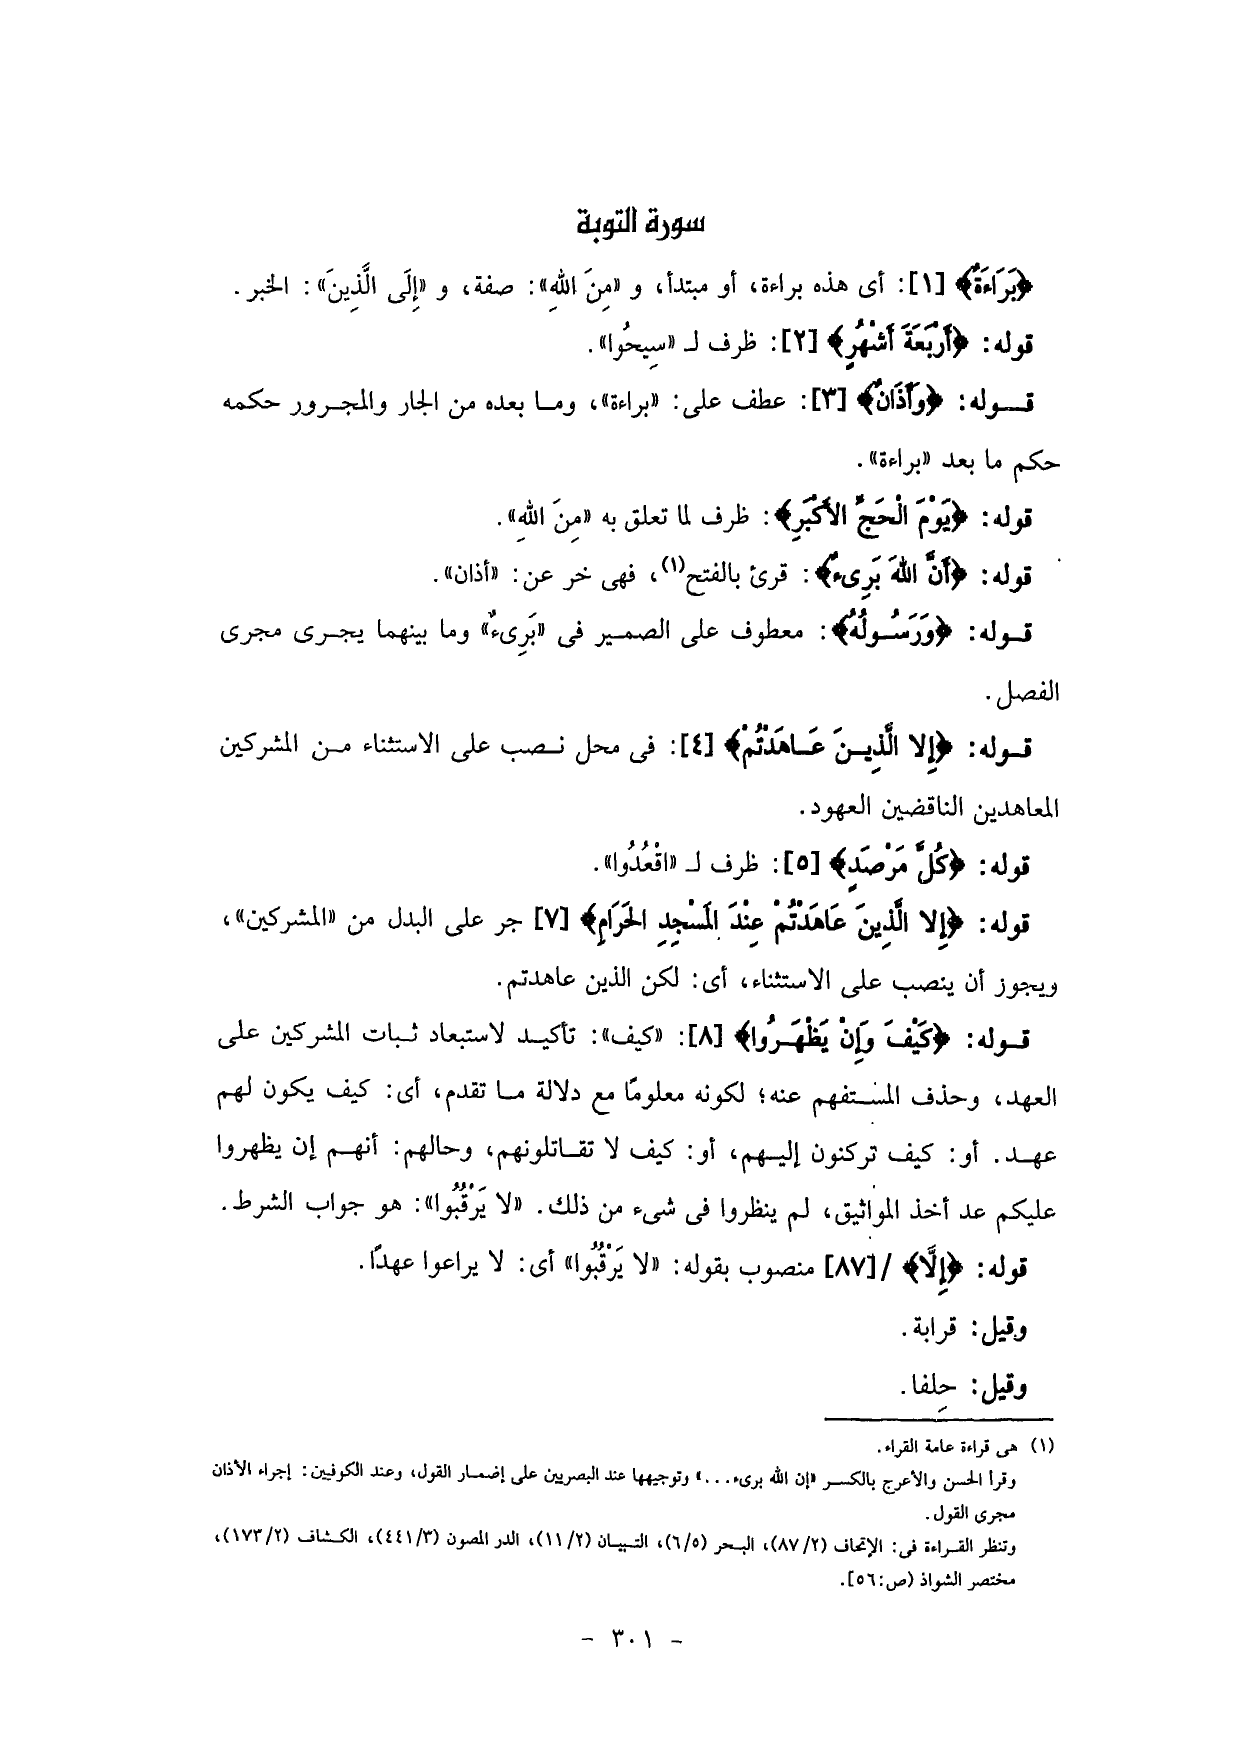 سورة التوبة
﴿بَرَاءَةٌ﴾ [١]: أى هذه براءة، أو مبتدأ، و «مِنَ اللهِ»: صفة، و «إِلَى الَّذِينَ»: الخبر.
قوله: ﴿أَرْبَعَةَ أَشْهُرٍ﴾ [٢]: ظرف لـ «سِيحُوا».
قـــوله: ﴿وَأَذَانٌ﴾ [٣]: عطف على: «براءة»، ومـا بعده من الجار والمجـرور حكمه
حكم ما بعد «براءة».
قوله: ﴿يَوْمَ الْحَجِّ الأَكْبَرِ﴾: ظرف لما تعلق به «مِنَ اللهِ».
قوله: ﴿أَنَّ اللهَ بَرِىءٌ﴾: قرئ بالفتح(١)، فهى خر عن: «أذان».
قـوله: ﴿وَرَسُـولُهُ﴾: معطوف على الضمير فى «بَرِىءٌ» وما بينهما يجـرى مجرى
الفصل.
قـوله: ﴿إِلا الَّذِيـنَ عَـاهَدْتُمْ﴾ [٤]: فى محل نـصب على الاستثناء مـن المشركين
المعاهدين الناقضين العهود.
قوله: ﴿كُلَّ مَرْصَدٍ﴾ [٥]: ظرف لـ «اقْعُدُوا».
قوله: ﴿إِلا الَّذِينَ عَاهَدْتُمْ عِنْدَ الْمَسْجِدِ الحَرَامِ﴾ [٧] جر على البدل من «المشركين»،
ويجوز أن ينصب على الاستثناء، أى: لكن الذين عاهدتم.
قـوله: ﴿كَيْفَ وَإِنْ يَظْهَـرُوا﴾ [٨]: «كيف»: تأكيـد لاستبعاد ثـبات المشركين على
العهد، وحذف المسـتفهم عنه؛ لكونه معلومًا مع دلالة مـا تقدم، أى: كيف يكون لهم
عهـد. أو: كيف تركنون إليـهم، أو: كيف لا تقـاتلونهم، وحالهم: أنهـم إن يظهروا
عليكم عد أخذ المواثيق، لم ينظروا فى شىء من ذلك. «لا يَرْقُبُوا»: هو جواب الشرط.
قوله: ﴿إِلًّا﴾ /[٨٧] منصوب بقوله: «لا يَرْقُبُوا» أى: لا يراعوا عهدًا.
وقيل: قرابة.
وقيل: حِلفا.
(١) هى قراءة عامة القراء.
وقرأ الحسن والأعرج بالكسـر «إن الله برىء...» وتوجيهها عند البصريين على إضمـار القول، وعند الكوفيين: إجراء الأذان
مجرى القول.
وتنظر القـراءة فى: الإتحاف (٨٧/٢)، البـحر (٦/٥)، التبـيـان (١١/٢)، الدر المصون (٤٤١/٣)، الكشـاف (١٧٣/٢)،
مختصر الشواذ (ص:٥٦].
- ٣٠١ -